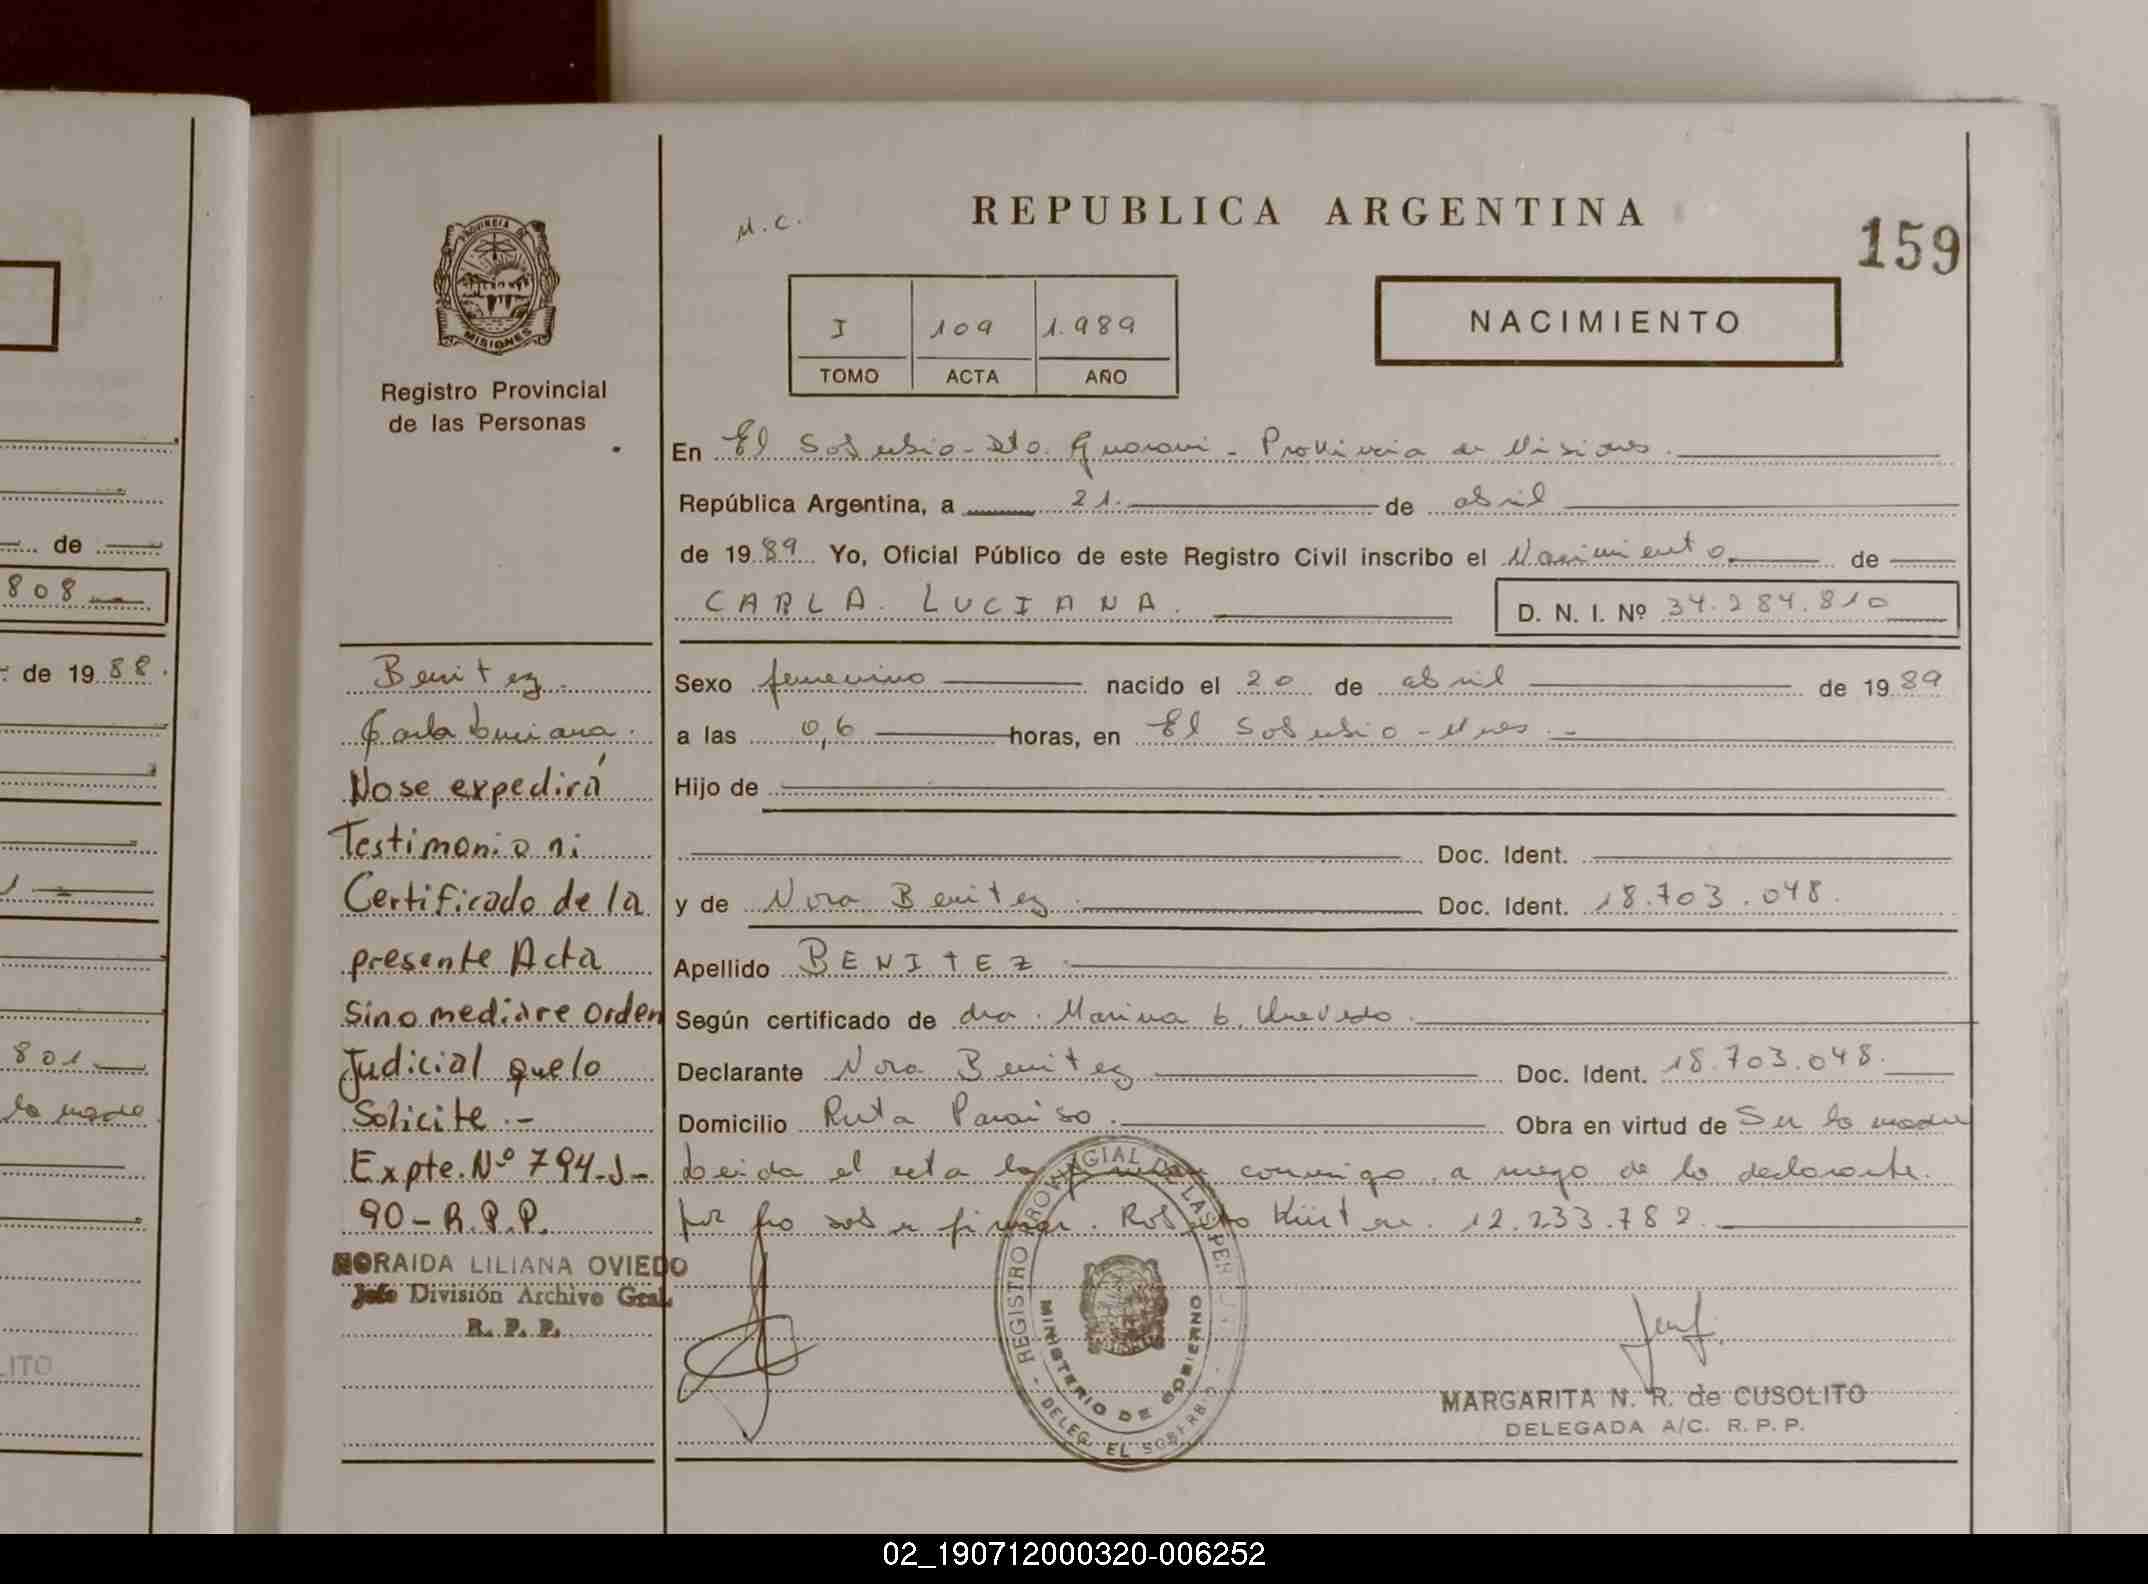 REPUBLICA ARGENTINA
159
M.C.
PROVINCIA DE
MISIONES
Registro Provincial
de las Personas
I 109 1.989
TOMO ACTA AÑO
NACIMIENTO
En El Soberbio - Dto. Guarani - Provincia de Misiones.
República Argentina, a 21. de abril
de 1989 Yo, Oficial Público de este Registro Civil inscribo el Nacimiento de
CARLA LUCIANA. D. N. I. Nº 34.284.810
Sexo femenino nacido el 20 de abril de 1989
a las 0,6 horas, en El Soberbio - Mnes. -
Hijo de
Doc. Ident.
y de Nora Benitez Doc. Ident. 18.703.048.
Apellido BENITEZ
Según certificado de dra. Marina
Declarante Nora Benitez Doc. Ident. 18.703.048.
Domicilio Ruta Paraiso. Obra en virtud de Ser la madre
Leida el acta la conmigo, a ruego de la declarante.
por no saber firmar. Roberto 12.233.782.
Benitez.
Carla Luciana.
No se expedirá
Testimonio ni
Certificado de la
presente Acta
Sino mediare orden
Judicial que lo
Solicite.-
Expte. Nº 794-J-
90 - R.P.P.
NORAIDA LILIANA OVIEDO
Jefe División Archivo Gral.
R. P. P.
REGISTRO PROVINCIAL DE LAS PERS
MINISTERIO DE GOBIERNO
- DELEG. EL SOBERBIO -
MARGARITA N. R. de CUSOLITO
DELEGADA A/C. R. P. P.
de
808
de 1988.
801
la madre
LITO
02_190712000320-006252